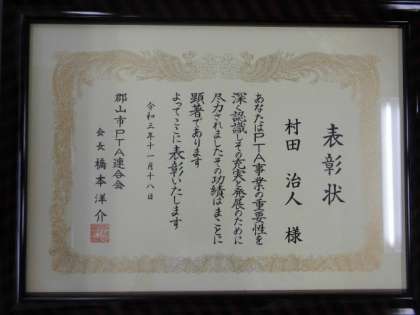 表彰状
村田 治人 様
あなたはPTA事業の重要性を
深く認識しその充実と発展のために
尽力されましたその功績はまことに
顕著であります
よってここに表彰いたします
令和三年十一月十八日
郡山市PTA連合会
会長 橋本 洋介